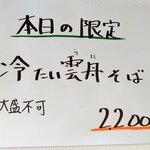 本日の限定
冷たい雲丹そば
大盛不可
2,200